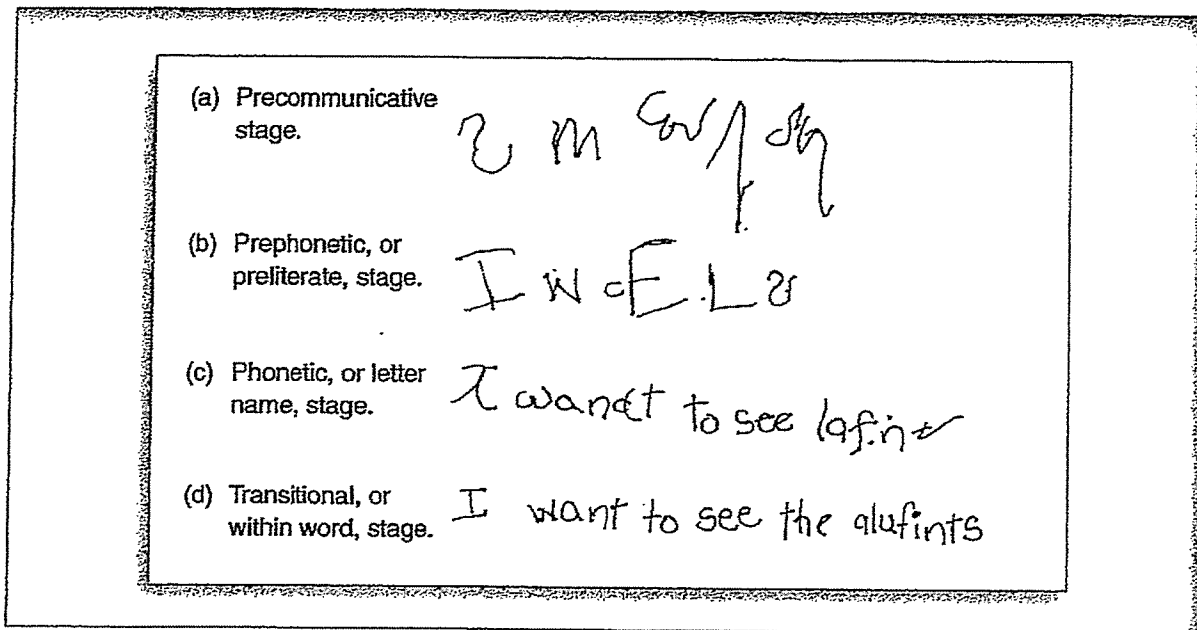 (a) Precommunicative
stage.
(b) Prephonetic, or
preliterate, stage. I W c E L
(c) Phonetic, or letter
name, stage. I wanct to see lafin
(d) Transitional, or
within word, stage. I want to see the alufints